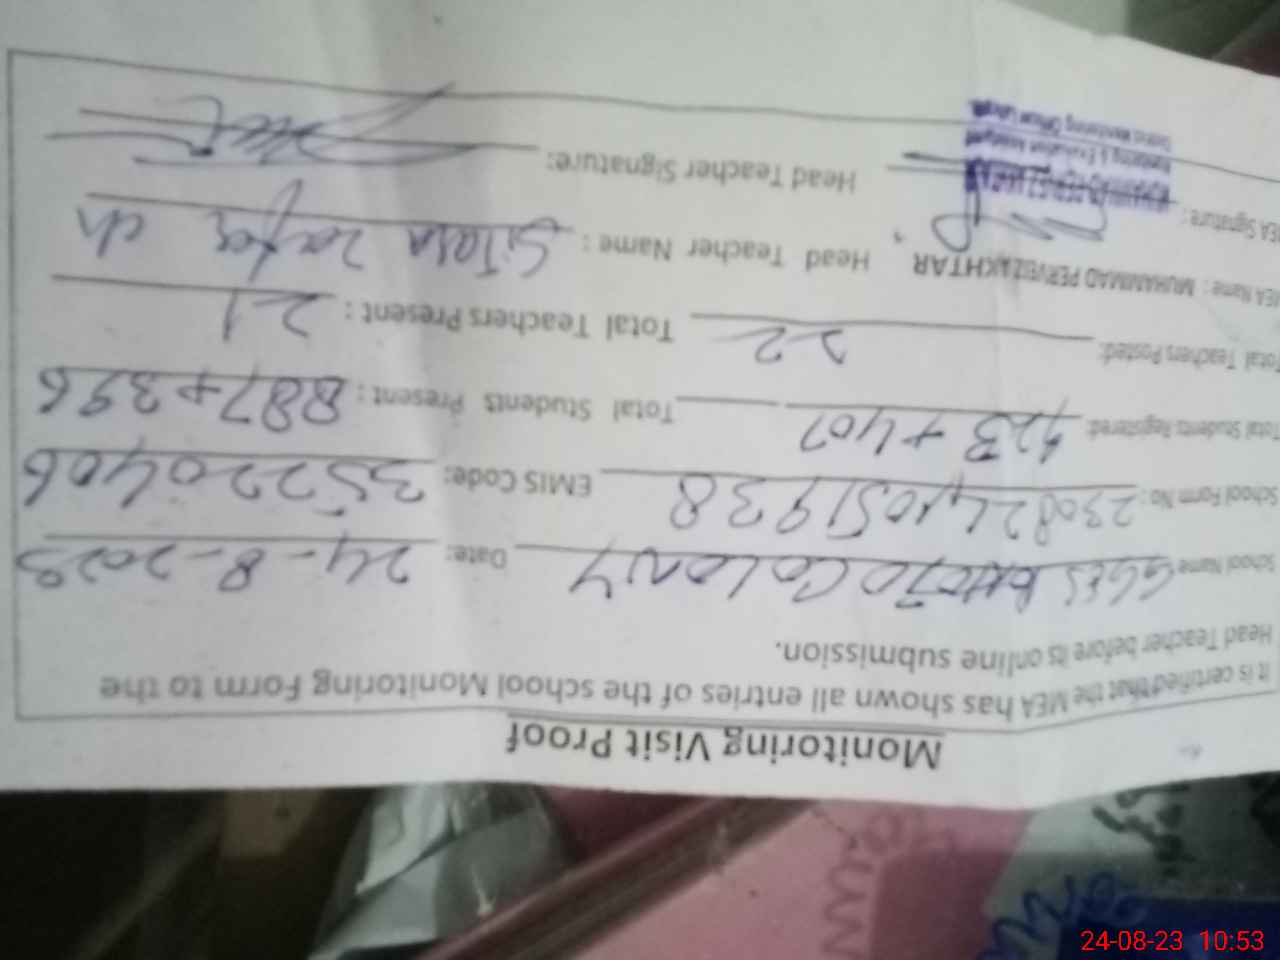 Monitoring Visit Proof
It is certified that the MEA has shown all entries of the school Monitoring Form to the
Head Teacher before its online submission.
School Name GGES BHOTO COLONY Date: 24-8-2023
School Form No: 2308241051938 EMIS Code: 35220406
Total Students Registered: 923 + 407 Total Students Present: 887 + 396
Total Teachers Posted: 22 Total Teachers Present: 21
MEA Name: MUHAMMAD PERVEZ AKHTAR Head Teacher Name: Sitara Zafar ch
MEA Signature: Head Teacher Signature:
MUHAMMAD PERVEZ AKHTAR
Monitoring & Evaluation Assistant
District Monitoring Officer Lahore
24-08-23 10:53